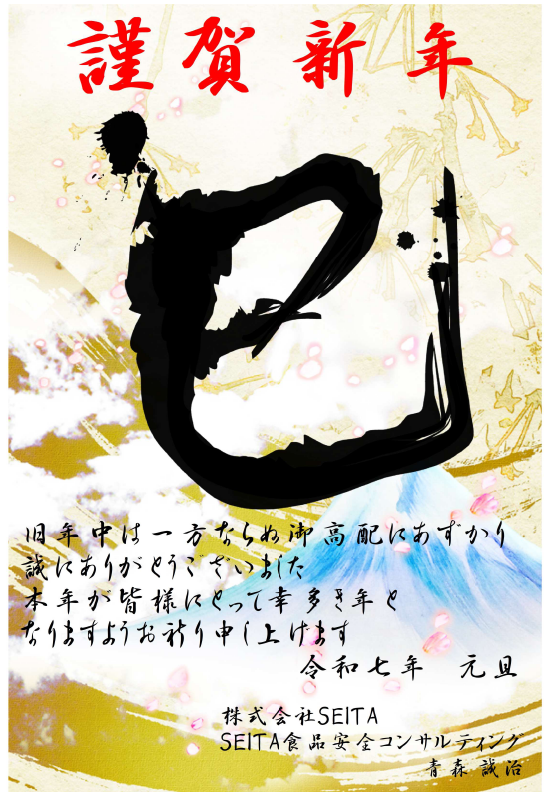 謹賀新年
巳
旧年中は一方ならぬ御高配にあずかり
誠にありがとうございました
本年が皆様にとって幸多き年と
なりますようお祈り申し上げます
令和七年　元旦
株式会社SEITA
SEITA食品安全コンサルティング
青森 誠治